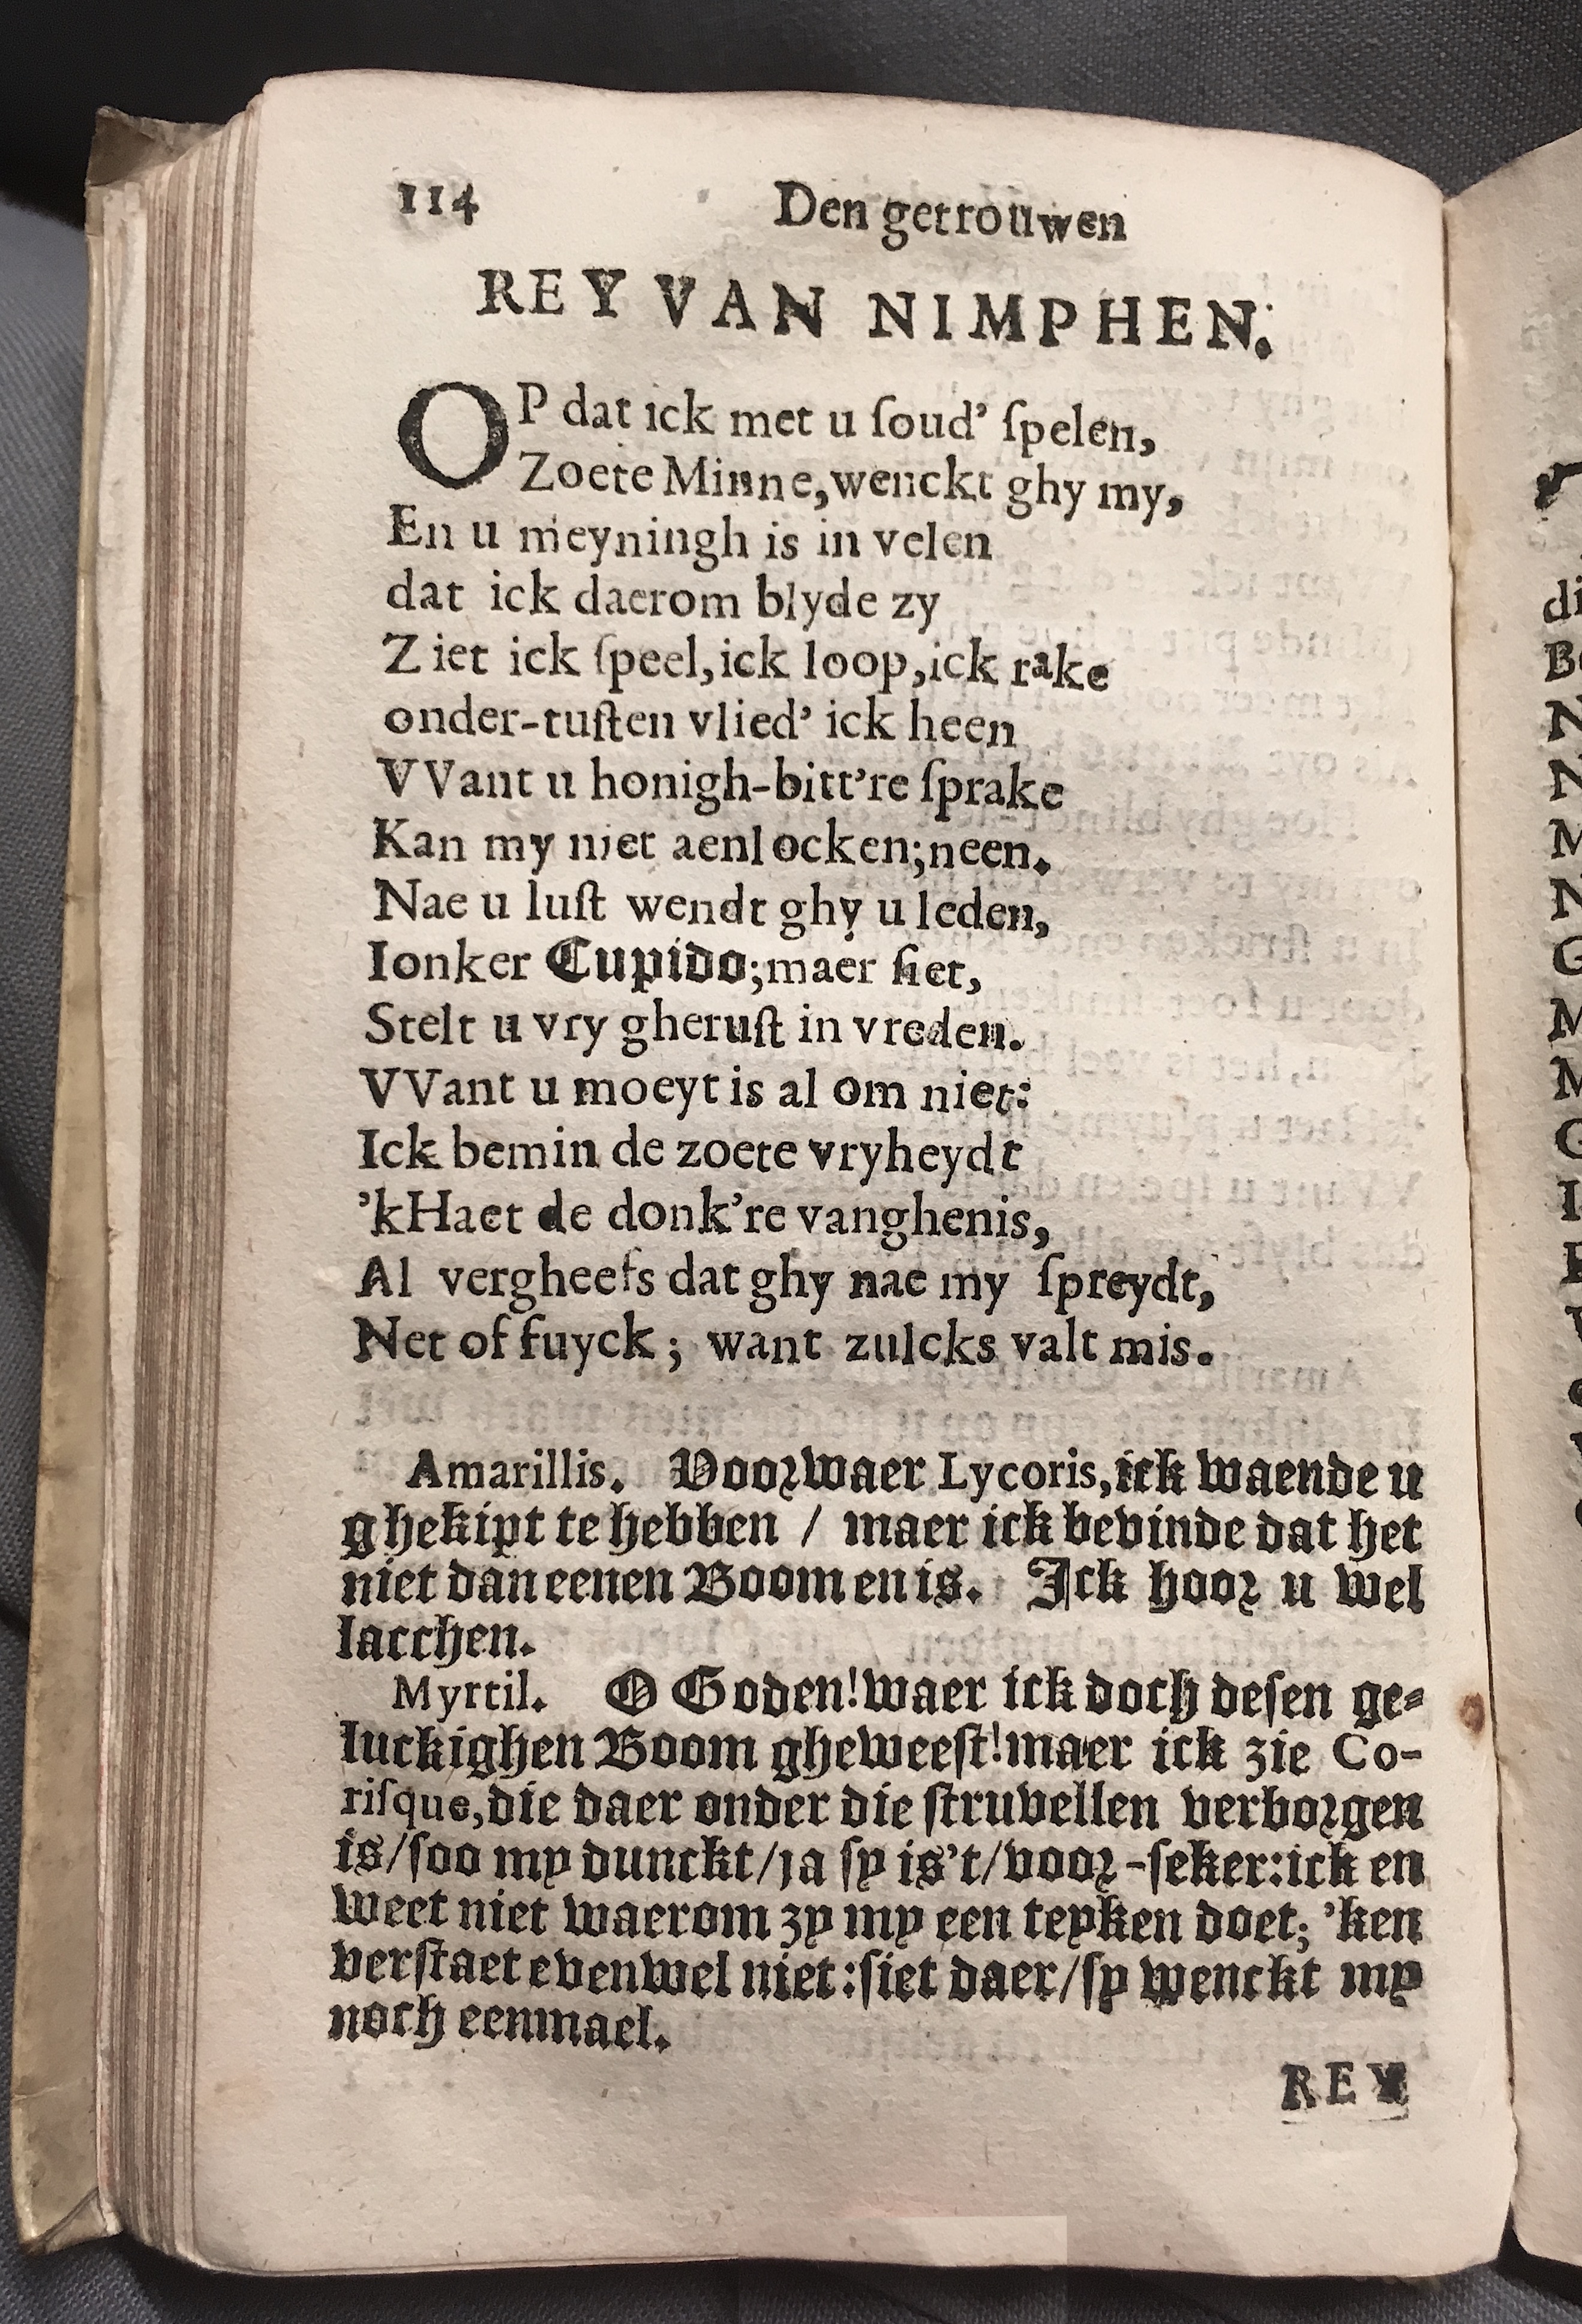 114 Den getrouwen
REY VAN NIMPHEN.
OP dat ick met u ſoud’ ſpelen,
Zoete Minne, wenckt ghy my,
En u meyningh is in velen
dat ick daerom blyde zy
Ziet ick ſpeel, ick loop, ick rake
onder-tuſten vlied’ ick heen
VVant u honigh-bitt’re ſprake
Kan my niet aenlocken; neen.
Nae u luſt wendt ghy u leden,
Ionker Cupido; maer ſiet,
Stelt u vry gheruſt in vreden.
VVant u moeyt is al om niet:
Ick bemin de zoete vryheydt
’kHaet de donk’re vanghenis,
Al vergheefs dat ghy nae my ſpreydt,
Net of fuyck; want zulcks valt mis.
Amarillis. Voorwaer Lycoris, ick waende u
ghekipt te hebben / maer ick bevinde dat het
niet dan eenen Boom en is. Ick hoor u wel
lacchen.
Myrtil. O Goden! waer ick doch deſen ge-
luckighen Boom gheweeſt! maer ick zie Co-
riſque, die daer onder die ſtruvellen verborgen
is/ſoo my dunckt/ja ſy is’t/voor-ſeker: ick en
weet niet waerom zy my een teyken doet; ’ken
verſtaet evenwel niet: ſiet daer/ſy wenckt my
noch eenmael.
REY
di